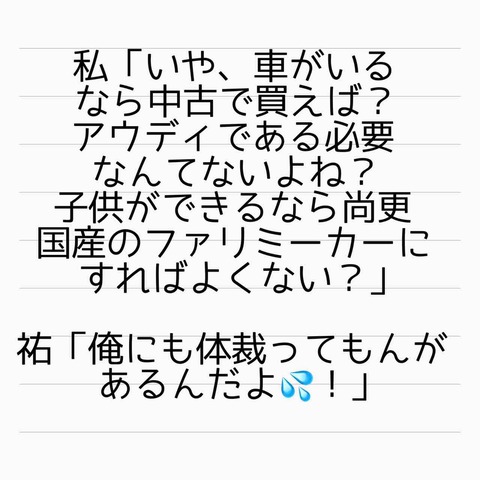 私「いや、車がいる
なら中古で買えば？
アウディである必要
なんてないよね？
子供ができるなら尚更
国産のファリミーカーに
すればよくない？」
祐「俺にも体裁ってもんが
あるんだよ💦！」